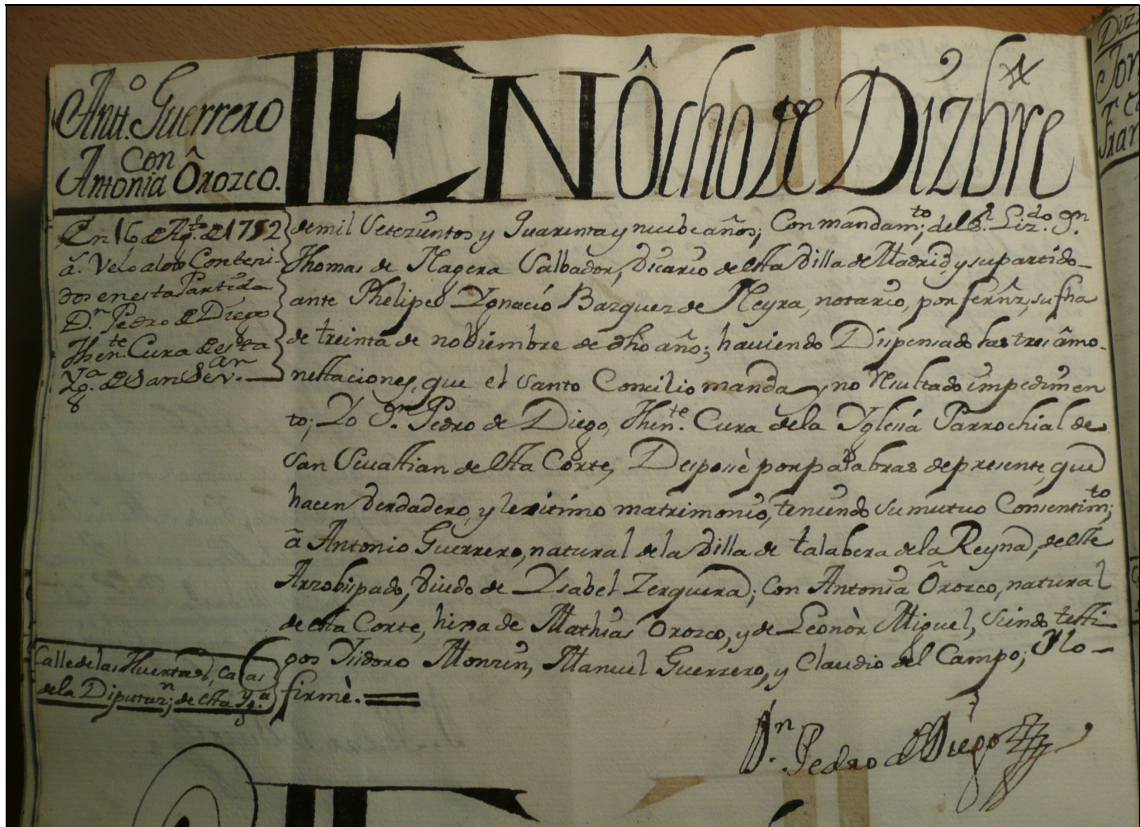 Antº. Guerrero
con
Antonia Ôrozco.
En 16 de Agᵗᵒ. de 1752
â. Velo alos Conteni-
dos en esta Partida
Dⁿ. Pedro de Diego
Thenᵗᵉ. Cura de esta
Ygᵃ. de San Sevᵃⁿ.
EN Ôcho de Dizbre
de mil Setezientos y Quarenta y nuebe años; Con mandamᵗᵒ; del Sʳ. Lizᵈᵒ. Dⁿ
Thomas de Nagera Salbador, Vicario de esta Villa de Madrid y su partido-
ante Phelipe Ygnació Bazquez de Neyra, notario, por fernz̃, su fha
de treinta de nobiembre de dho año; haviendo Dispensado las tres âmo-
nestaciones, que el Santo Concilio manda y no Resultado impedimen
to; Yo Dⁿ. Pedro de Diego, Thenᵗᵉ. Cura de la Yglesiá Parrochial de
San Sevastian de esta Corte, Desposè por palabras de presente, que
hacen verdadero, y lexitimo matrimonio, teniendo su mutuo Consentimᵗᵒ;
â Antonio Guerrero, natural de la Villa de talabera de la Reyna, de este
Arzobispado, viudo de Ysabel Zerquera; con Antonia Ôrozco, natural
de esta Corte, hixa de Mathias Orozco, y de Leonòr Miguel, siendo testi
gos Ysidoro Monzin, Manuel Guerrero, y Claudio del Campo; Y lo-
firmè.
Calle de las Huertas, Casas
de la Diputazⁿ; de esta Ygᵃ
Dⁿ. Pedro de Diego